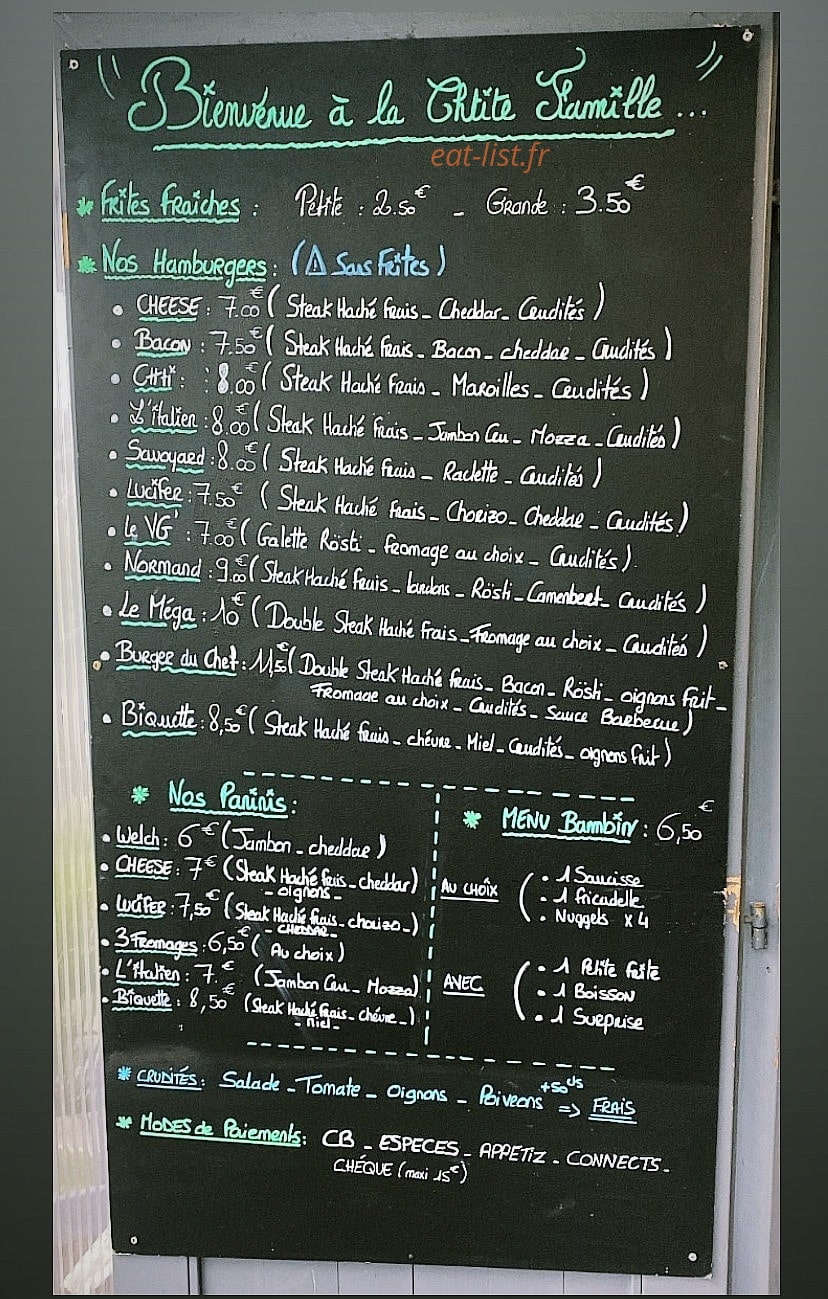 " Bienvenue à la Chtite Famille... "
eat-list.fr
* Frites Fraîches : Petite : 2.50€ - Grande : 3.50€
* Nos Hamburgers : (⚠ Sans Frites)
• CHEESE : 7.00€ (Steak Haché Frais - Cheddar - Crudités)
• Bacon : 7.50€ (Steak Haché Frais - Bacon - cheddar - Crudités)
• Chti : 8.00€ (Steak Haché Frais - Maroilles - Crudités)
• L'italien : 8.00€ (Steak Haché Frais - Jambon Cru - Mozza - Crudités)
• Savoyard : 8.00€ (Steak Haché Frais - Raclette - Crudités)
• Lucifer : 7.50€ (Steak Haché Frais - Chorizo - Cheddar - Crudités)
• Le VG' : 7.00€ (Galette Rösti - Fromage au choix - Crudités)
• Normand : 9.00€ (Steak Haché Frais - lardons - Rösti - Camembert - Crudités)
• Le Méga : 10€ (Double Steak Haché Frais - Fromage au choix - Crudités)
• Burger du Chef : 11,5€ (Double Steak Haché Frais - Bacon - Rösti - oignons frit -
Fromage au choix - Crudités - Sauce Barbecue)
• Biquette : 8,50€ (Steak Haché Frais - chévre - Miel - Crudités - oignons frit)
* Nos Paninis :
• Welch : 6€ (Jambon - cheddar)
• CHEESE : 7€ (Steak Haché Frais - cheddar)
- oignons -
• Lucifer : 7,50€ (Steak Haché Frais - chorizo -)
- CHEDDAR -
• 3 Fromages : 6,50€ (Au choix)
• L'italien : 7.€ (Jambon Cru - Mozza)
• Biquette : 8,50€ (Steak Haché Frais - chévre -)
- Miel -
* MENU Bambin : 6,50€
AU CHOIX
• 1 Saucisse
• 1 Fricadelle
• Nuggets x4
AVEC
• 1 Petite frite
• 1 Boisson
• 1 Surprise
* CRUDITÉS : Salade - Tomate - Oignons - Poivrons +50cts => FRAIS
* MODES de Paiements : CB - ESPECES - APPETIZ - CONNECTS -
CHÉQUE (maxi 15€)